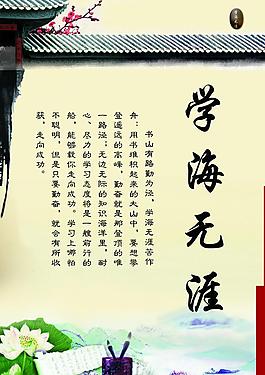 学海无涯
书山有路勤为泾，学海无涯苦作
舟：用书堆积起来的大山中，要想攀
登遥远的高峰，勤奋就是那登顶的唯
一路泾；无边无际的知识海洋里，耐
心、尽力的学习态度将是一艘前行的
船，能够载你走向成功。学习上哪怕
不聪明，但是只要勤奋，就会有所收
获，走向成功。